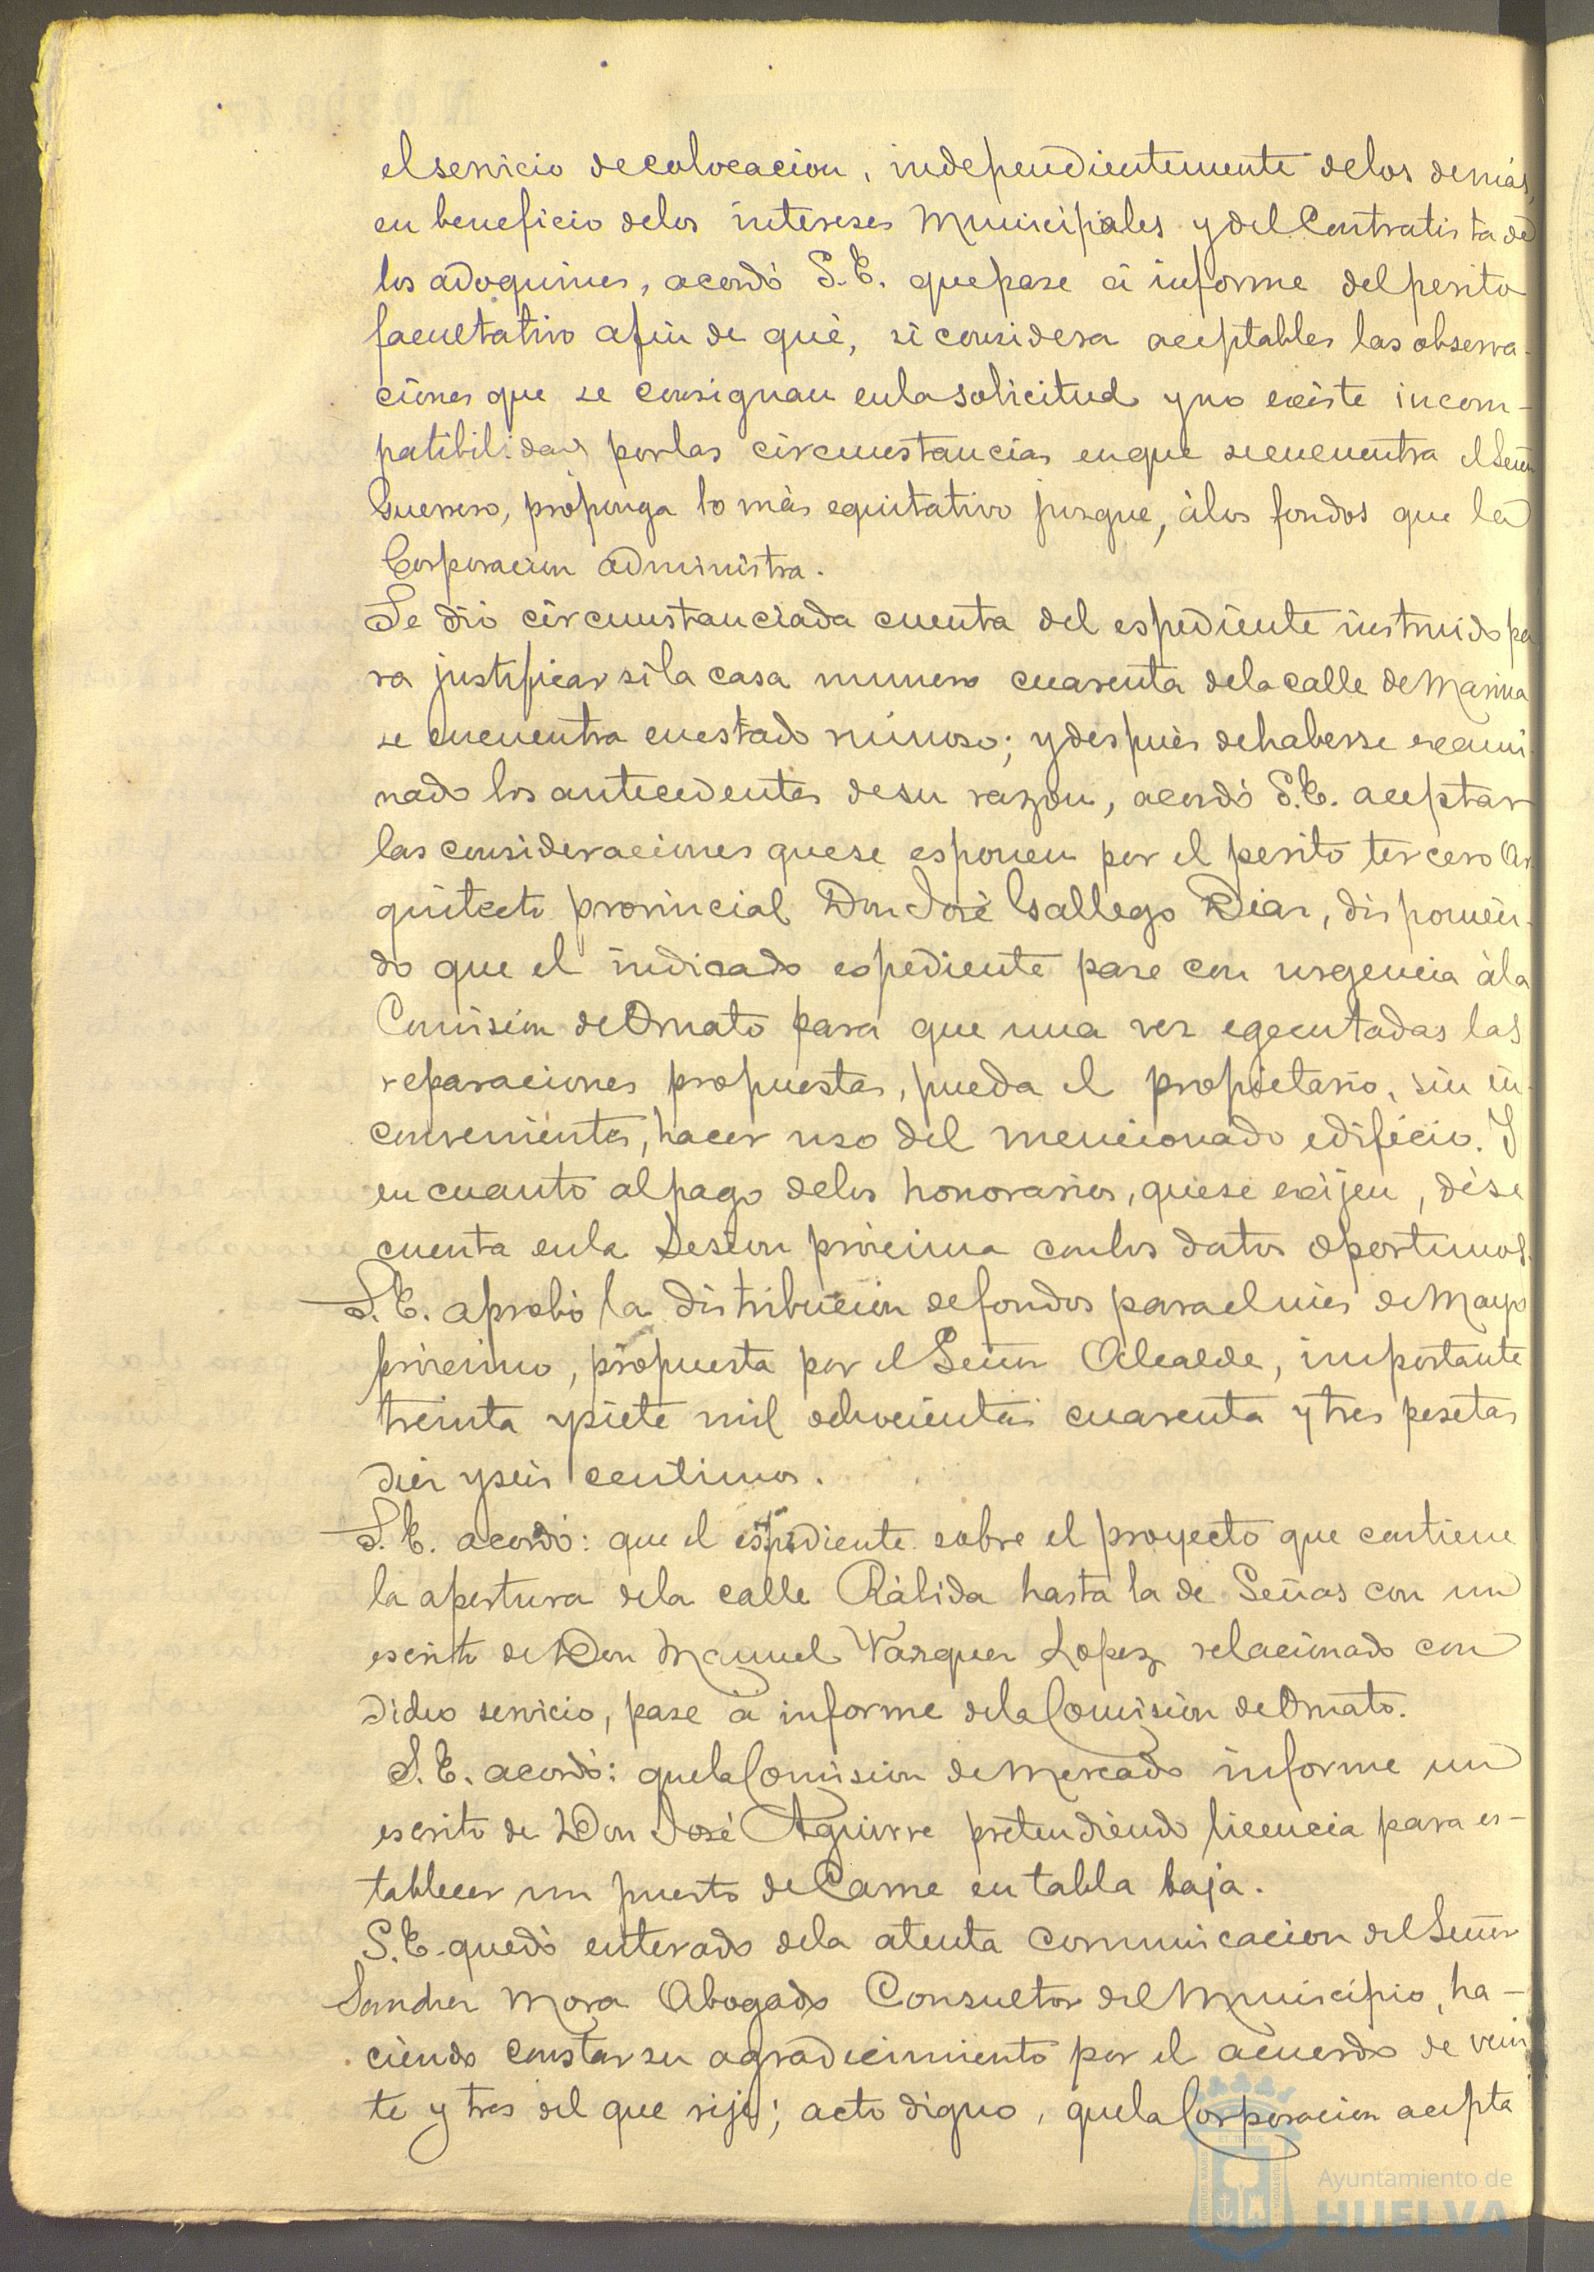 el servicio de colocacion, independientemente de los demás,
en beneficio de los intereses Municipales y del Contratista de
los adoquines, acordó S.E. que pase á informe del perito
facultativo afin de què, si considera aceptables las observa-
ciones que se consignan en la solicitud y no existe incom-
patibilidad por las circunstancias en que se encuentra el Señor
Guerrero, proponga lo más equitativo jusgue, á los fondos que la
Corporacion administra.
Se dió circunstanciada cuenta del espediente instruido pa
ra justificar si la casa numero cuarenta de la calle de Marina
se encuentra en estado ruinoso; y después de haberse exami-
nado los antecedentes de su razon, acordó S.E. aceptar
las consideraciones que se esponen por el perito tercero Ar
quitecto provincial Don José Gallego Diaz, disponien-
do que el indicado espediente pase con urgencia á la
Comision de Ornato para que una vez egecutadas las
reparaciones propuestas, pueda el propietario, sin in-
convenientes, hacer uso del mencionado edificio. Y
en cuanto al pago de los honorarios, que se exijen, dése
cuenta en la Sesion próxima con los datos oportunos.
S.E. aprobó la distribucion de fondos para el mes de Mayo
próximo, propuesta por el Señor Alcalde, importante
treinta y siete mil ochocientas cuarenta y tres pesetas
diez y seis centimos.
S.E. acordó: que el espediente sobre el proyecto que contiene
la apertura de la calle Rábida hasta la de Señas con un
escrito de Don Manuel Vazquez Lopez relacionado con
dicho servicio, pase á informe de la Comision de Ornato.
S.E. acordó: que la Comision de Mercado informe un
escrito de Don José Aguirre pretendiendo licencia para es-
tablecer un puesto de Carne en tabla baja.
S.E. quedó enterado de la atenta comunicacion del Señor
Sanchez Mora Abogado Consultor del Municipio, ha-
ciendo constar su agradecimiento por el acuerdo de vein
te y tres del que rije; acto digno, que la Corporacion acepta
Ayuntamiento de
HUELVA